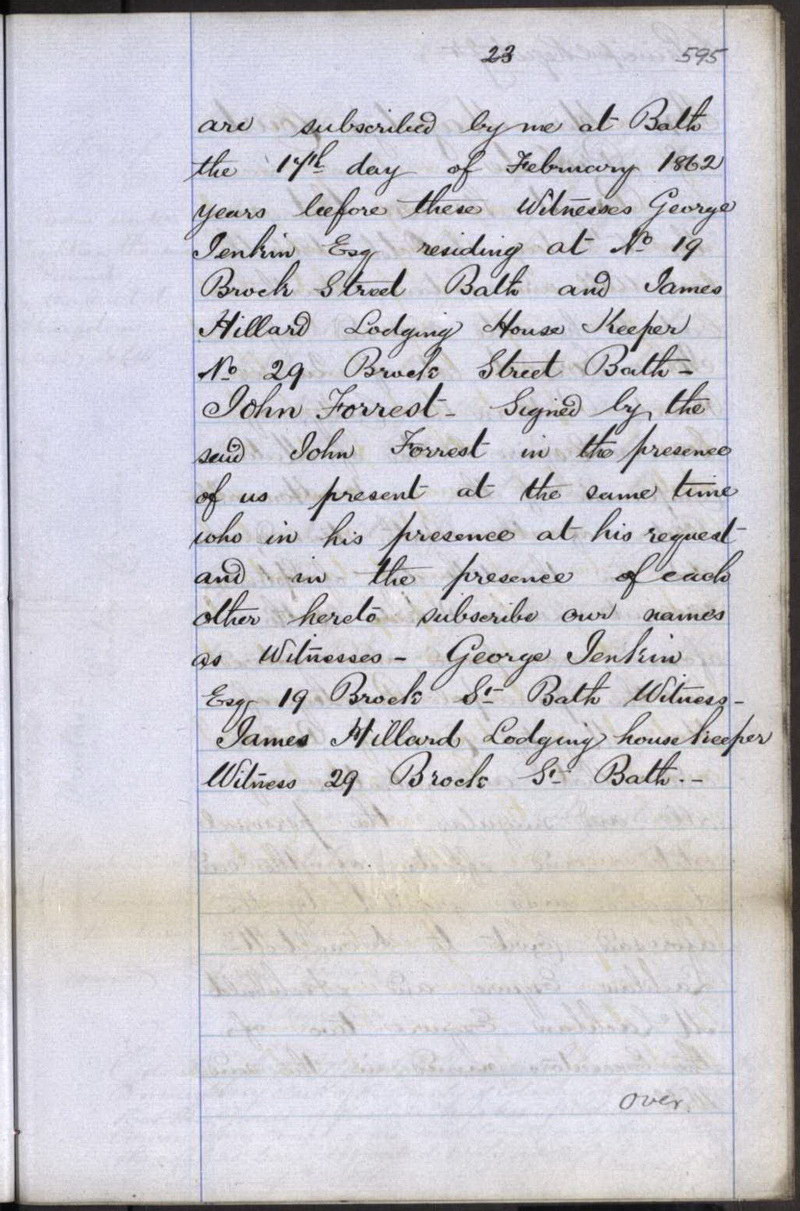 23 595
are subscribed by me at Bath
the 17th day of February 1862
years before these Witnesses George
Jenkin Esq residing at No 19
Brock Street Bath and James
Hillard Lodging House Keeper
No 29 Brock Street Bath -
John Forrest - Signed by the
said John Forrest in the presence
of us present at the same time
who in his presence at his request
and in the presence of each
other hereto subscribe our names
as Witnesses - George Jenkin
Esq 19 Brock St Bath Witness -
James Hillard Lodging house keeper
Witness 29 Brock St Bath. -
over